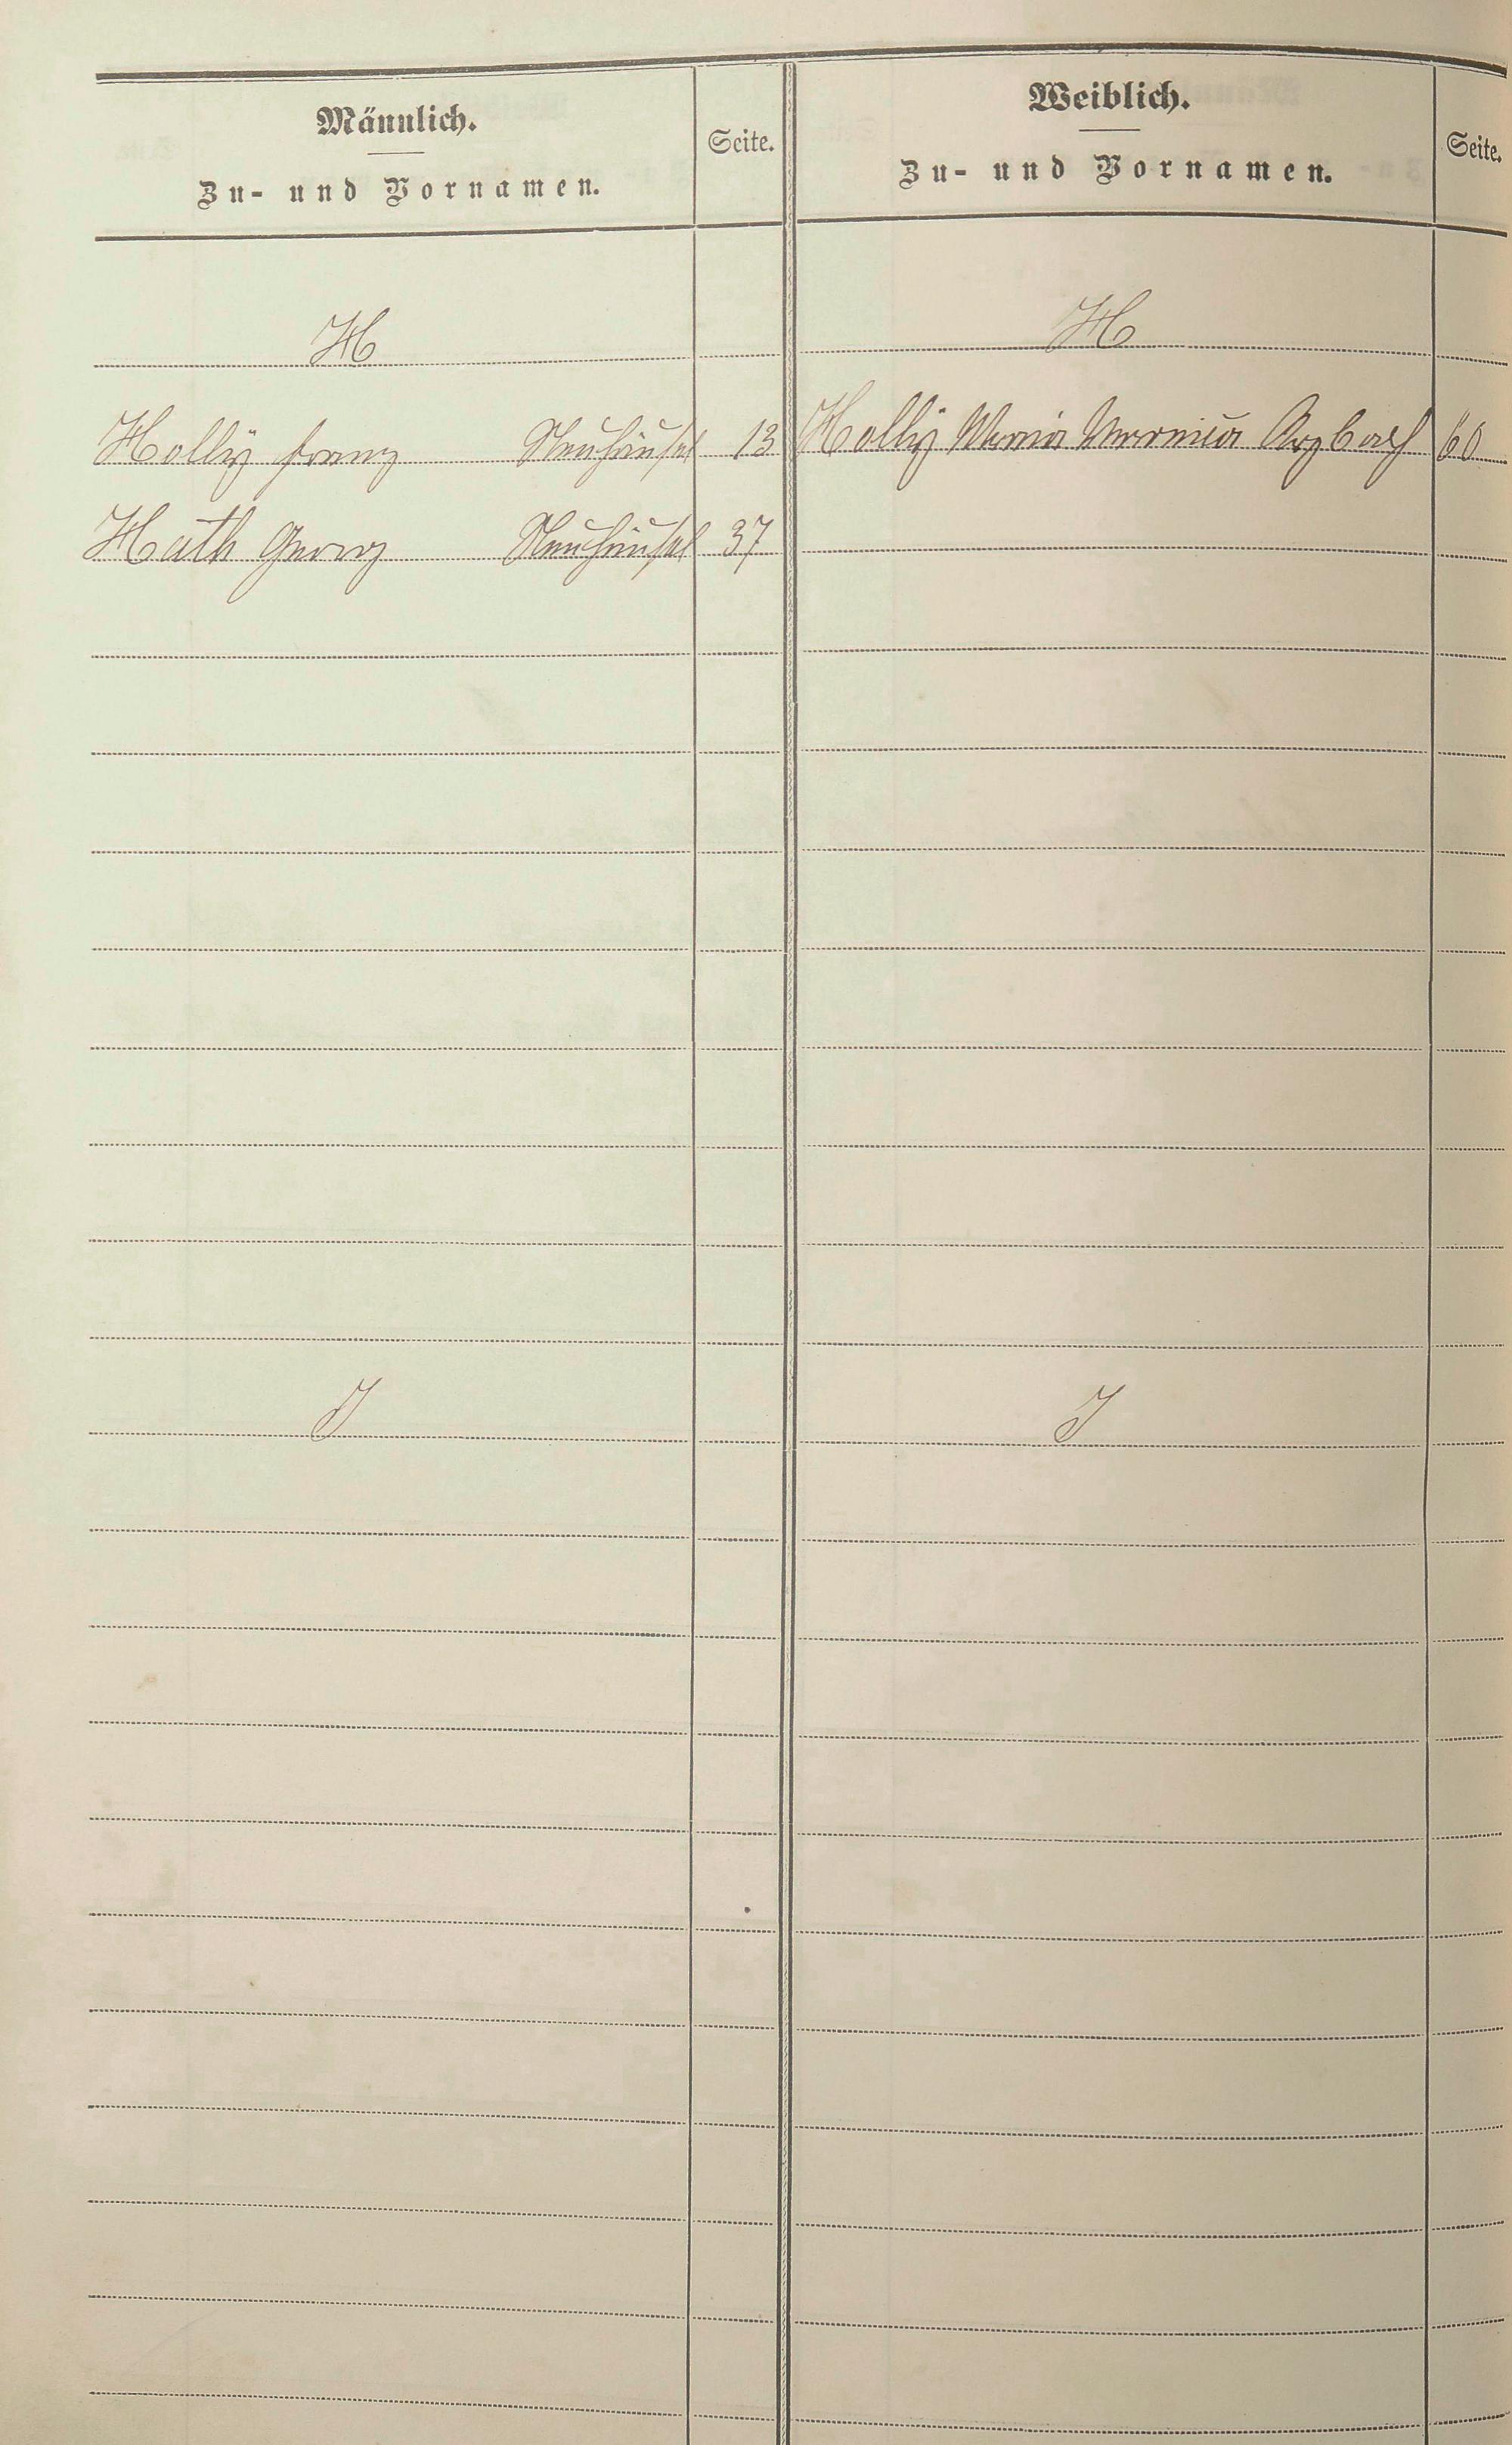 Männlich.
Zu- und Vornamen.
Seite.
Weiblich.
Zu- und Vornamen.
Seite.
H
H
Hollÿ Franz Neuhäusel 13
Hollÿ Maria Veronica Arzbach 60
Huth Georg Neuhäusel 37
J
J